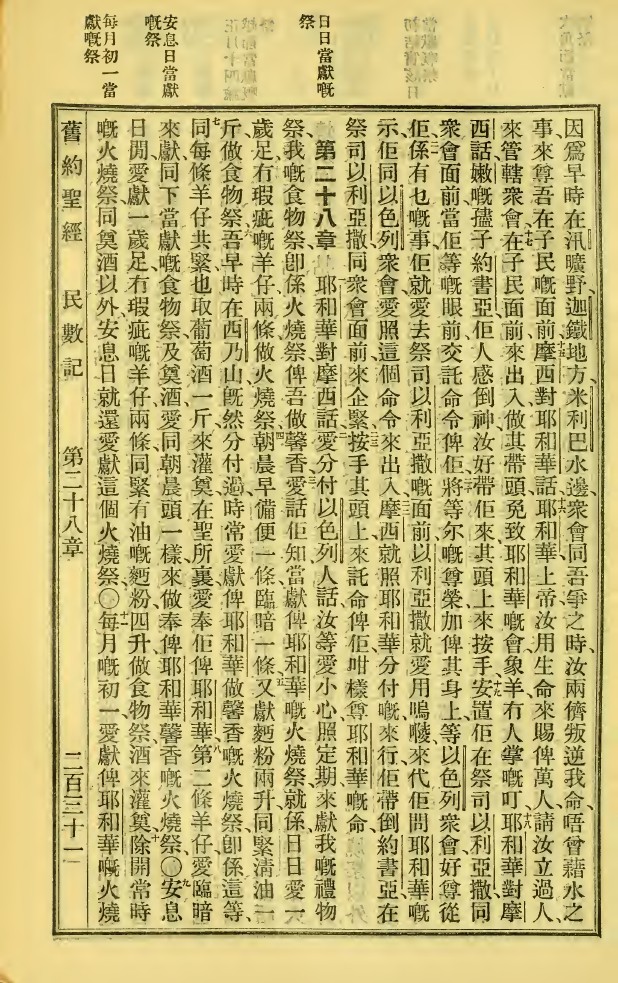 因爲早時在汛曠野迦鐵地方米利巴水邊衆會同吾爭之時汝兩儕叛逆我命唔曾藉水之
事來尊吾在子民嘅面前摩西對耶和華話耶和華上帝汝用生命來賜俾萬人請汝立過人
來管轄衆會在子民面前來出入做其帶頭免致耶和華嘅會象羊冇人掌嘅叮耶和華對摩
西話嫩嘅儘子約書亞佢人感倒神汝好帶佢來其頭上來按手安置佢在祭司以利亞撒同
衆會面前當佢等嘅眼前交託命令俾佢將等尔嘅尊榮加俾其身上等以色列衆會好尊從
佢係有乜嘅事佢就愛去祭司以利亞撒嘅面前以利亞撒就愛用嗚㖫來代佢問耶和華嘅
示佢同以色列衆會愛照這個命令來出入摩西就照耶和華分付嘅來行佢帶倒約書亞在
祭司以利亞撒同衆會面前來企緊按手其頭上來託命俾佢咁樣尊耶和華嘅命
第二十八章 耶和華對摩西話愛分付以色列人話汝等愛小心照定期來獻我嘅禮物
祭我嘅食物祭卽係火燒祭俾吾做馨香愛話佢知當獻俾耶和華嘅火燒祭就係日日愛一
歲足冇瑕疵嘅羊仔兩條做火燒祭朝晨早備便一條臨暗一條又獻麪粉兩升同緊清油一
斤做食物祭吾早時在西乃山旣然分付過時常愛獻俾耶和華做馨香嘅火燒祭卽係這等
同每條羊仔共緊也取葡萄酒一斤來灌奠在聖所裏愛奉佢俾耶和華第二條羊仔愛臨暗
來獻同下當獻嘅食物祭及奠酒愛同朝晨頭一樣來做奉俾耶和華馨香嘅火燒祭〇安息
日閒愛獻一歲足冇瑕疵嘅羊仔兩條同緊有油嘅麪粉四升做食物祭酒來灌奠除開常時
嘅火燒祭同奠酒以外安息日就還愛獻這個火燒祭〇每月嘅初一愛獻俾耶和華嘅火燒
日日當獻嘅
祭
安息日當獻
嘅祭
每月初一當
獻嘅祭
舊約聖經 民數記 第二十八章 二百三十一